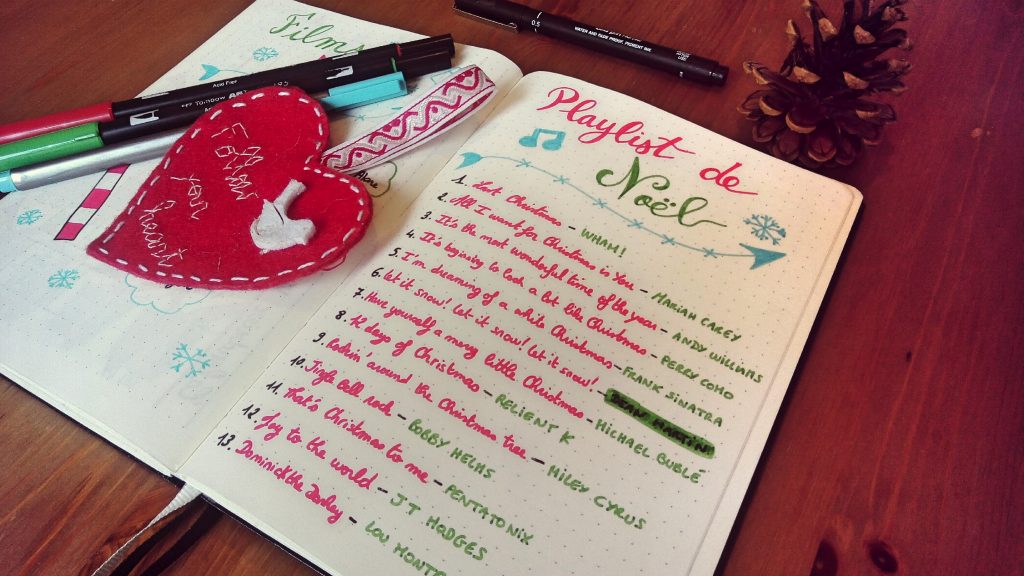 Films
Acid Free
Tombow ART
Follow
your
heart
0.5
WATER AND FADE PROOF, PIGMENT INK
Playlist de
Noël
1. Last Christmas – WHAM!
2. All I want for Christmas is You – MARIAH CAREY
3. It's the most wonderful time of the year – ANDY WILLIAMS
4. It's beginning to look a lot like Christmas – PERRY COMO
5. I'm dreaming of a white Christmas – FRANK SINATRA
6. Let it snow! Let it snow! Let it snow! – DEAN MARTIN
7. Have yourself a merry little Christmas – MICHAEL BUBLÉ
8. 12 days of Christmas – RELIENT K
9. Rockin' around the Christmas tree – MILEY CYRUS
10. Jingle bell rock – BOBBY HELMS
11. That's Christmas to me – PENTATONIX
12. Joy to the world – J T HODGES
13. Dominick the Donkey – LOU MONTE